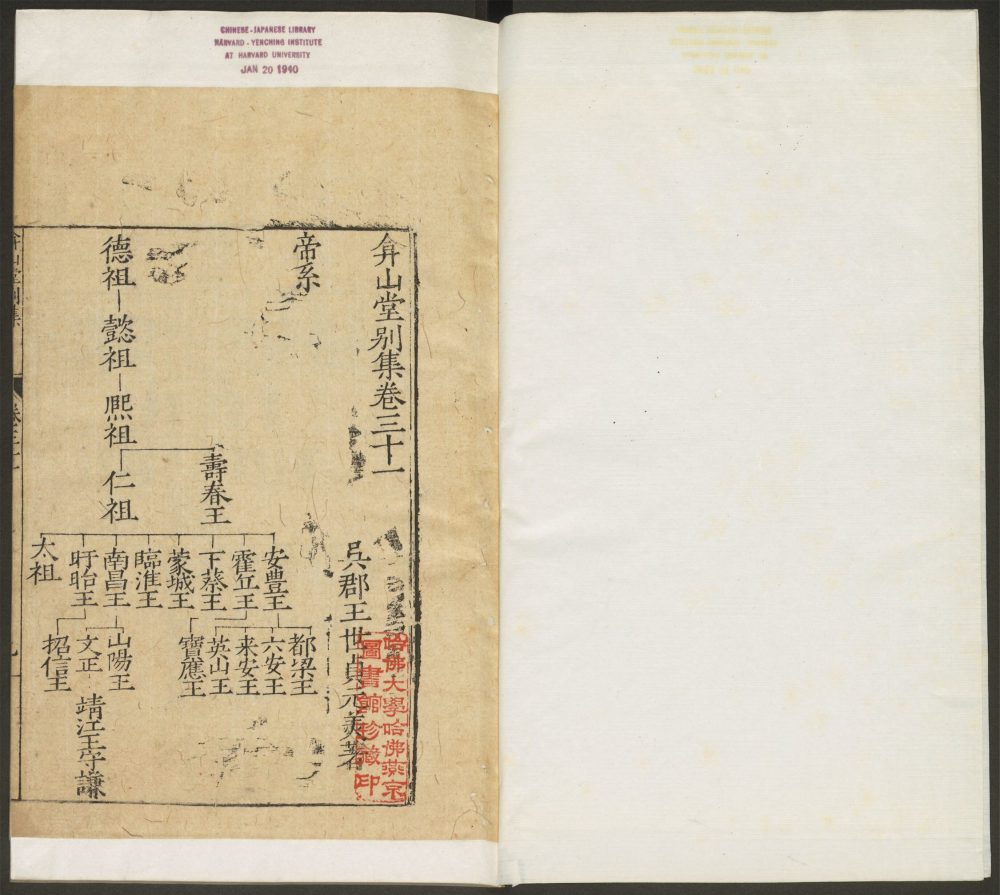 CHINESE-JAPANESE LIBRARY
HARVARD-YENCHING INSTITUTE
AT HARVARD UNIVERSITY
JAN 20 1940
弇山堂别集卷三十一
吳郡王世貞元美著
哈佛大學哈佛燕京
圖書館珍藏印
帝系
德祖
懿祖
熈祖
壽春王
仁祖
安豊王
霍丘王
下蔡王
蒙城王
臨淮王
南昌王
盱眙王
太祖
都梁王
六安王
来安王
英山王
寶應王
山陽王
文正
靖江王守謙
招信王